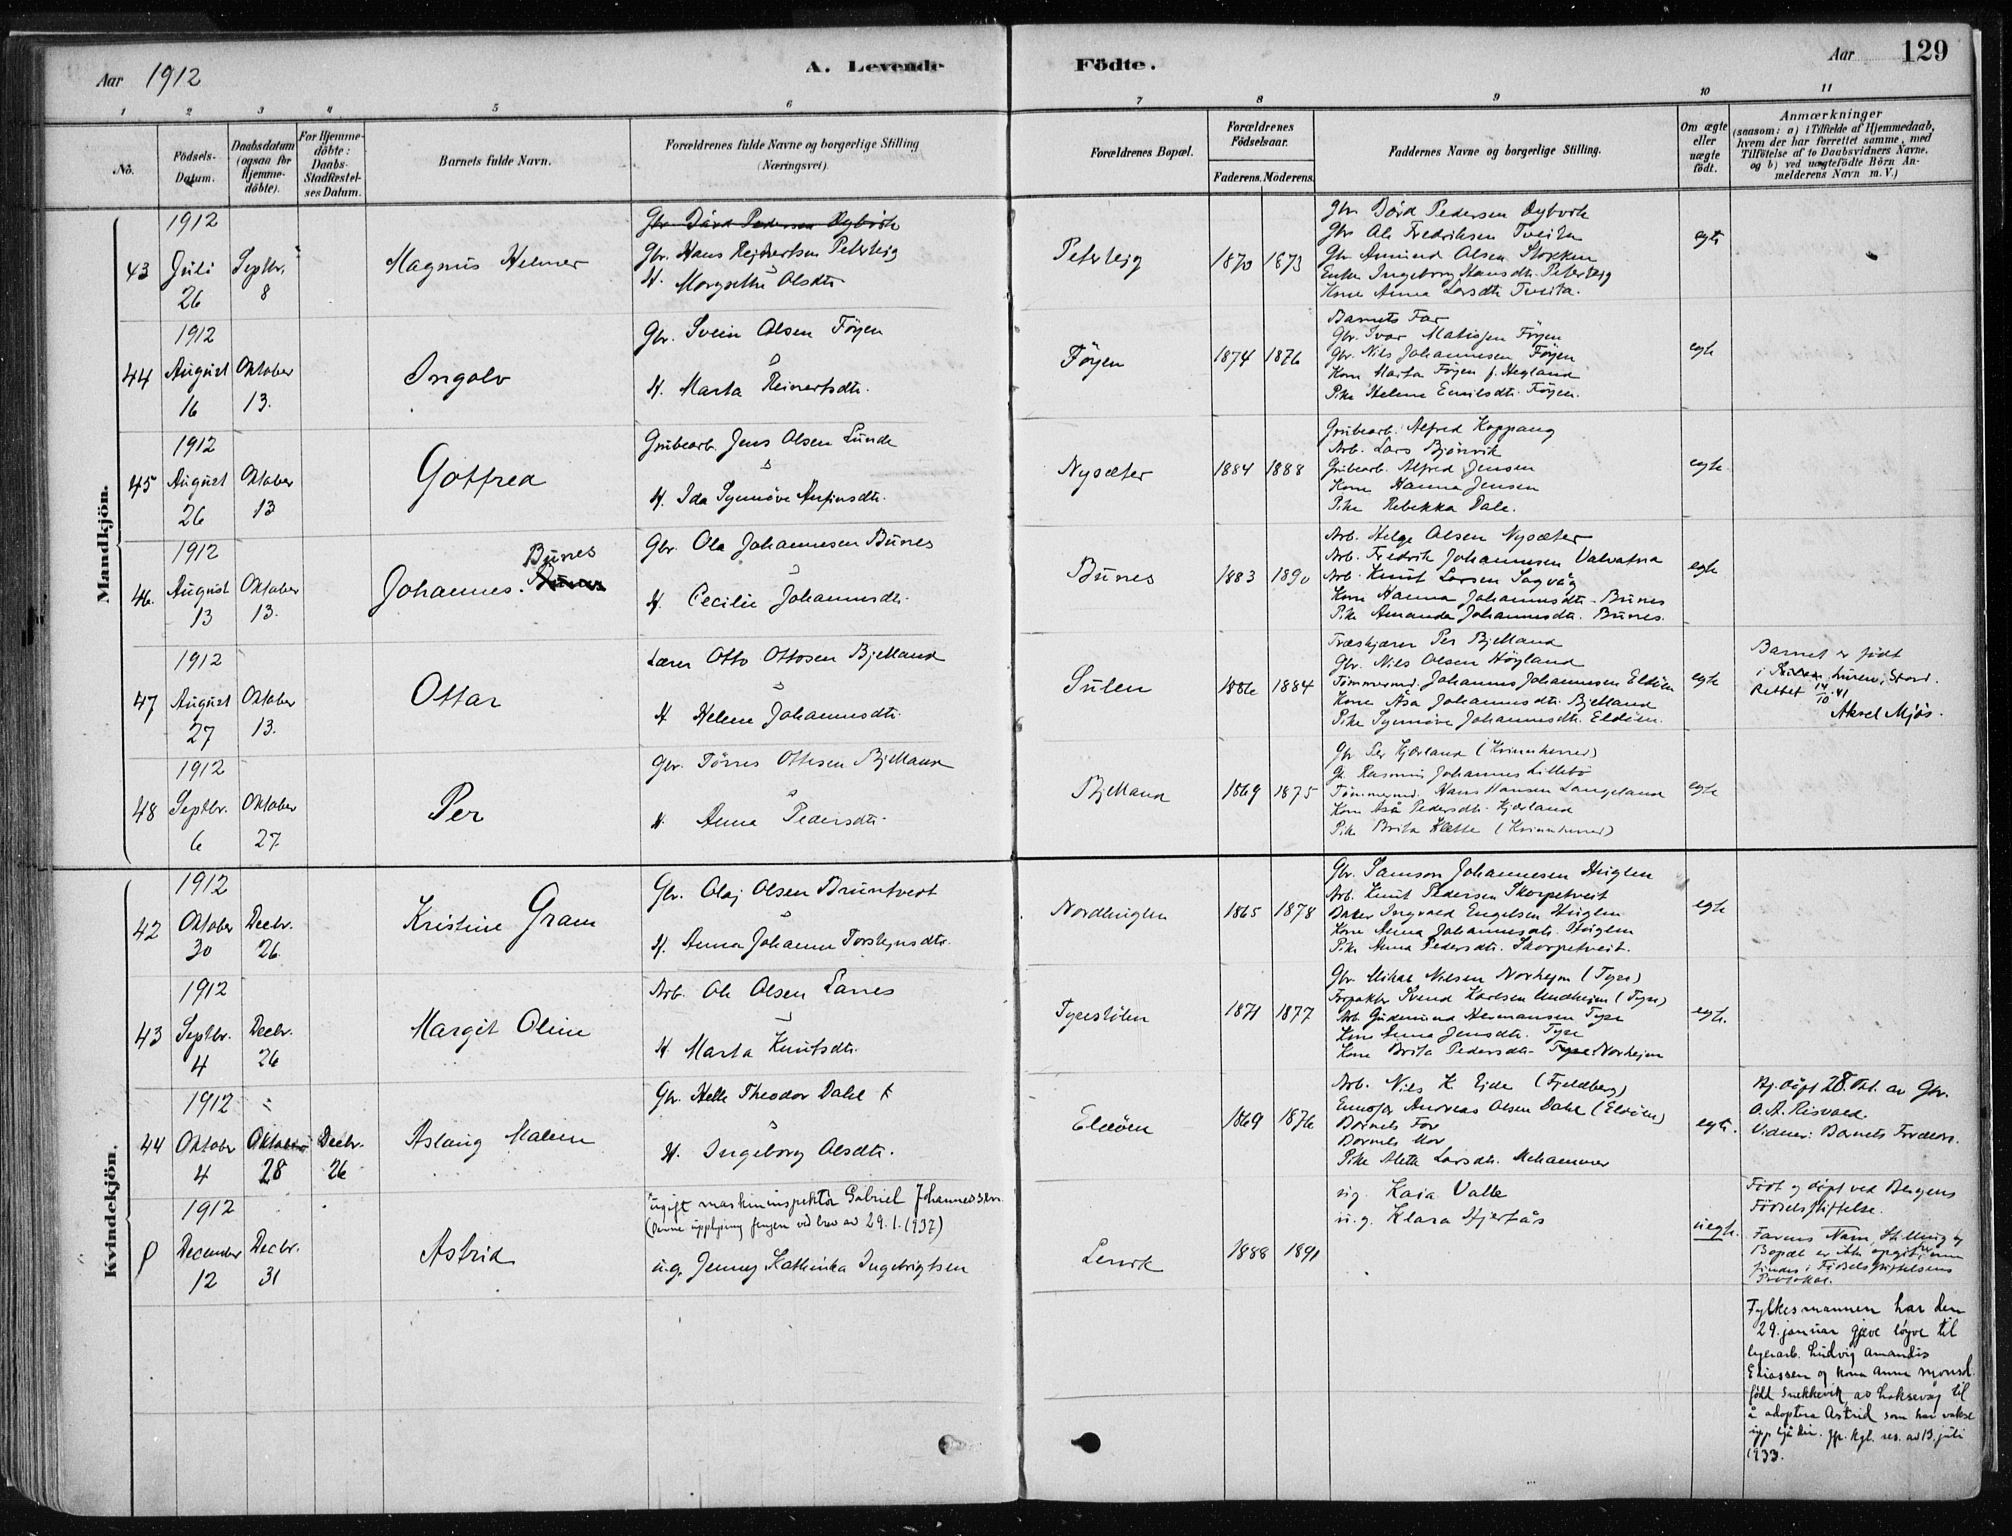 Aar 1912
A. Levende
Födte.
Aar 129
1 2 3 4 5 6 7 8 9 10 11
No.
Födsels-Datum.
Daabsdatum (ogsaa for Hjemmedöbte).
For Hjemmedöbte: Daabs-StadfæstelsesDatum.
Barnets fulde Navn.
Forældrenes fulde Navne og borgerlige Stilling (Næringsvei)
Forældrenes Bopæl.
Forældrenes Födselsaar.
Faderens. Moderens.
Faddernes Navne og borgerlige Stilling.
Om ægte eller uægte födt.
Anmærkninger
(saasom: a) i Tilfælde af Hjemmedaab, hvem der har forrettet samme, med Tilföielse af to Daabsvidners Navne, og b) ved uægtefödte Börn Anmelderens Navn m. V.)
Mandkjön.
43
1912 Juli 26
Septbr. 8
Magnus Helmer
Gbr. Bård Pedersen Dybvik
Gbr. Hans Reinertsen Peterteig
H. Margrethe Olsdtr.
Peterteig
1870 1873
Gbr. Bård Pedersen Dybvik
Gbr. Ole Fredriksen Tveita
Gbr. Amund Olsen Stokken
Enke Ingeborg Hansdtr. Peterteig
Kone Anna Larsdtr. Tveita.
egte
44
1912 August 16
Oktober 13.
Ingolv
Gbr. Svein Olsen Föyen
H. Marta Reinertsdtr.
Föyen
1874 1876
Barnets Far
Gbr. Ivar Matiasen Föyen
Gbr. Nils Johannesen Föyen
Kone Marta Föyen f. Hegland
Pike Helene Emilsdtr. Föyen.
egte
45
1912 August 26
Oktober 13
Gotfred
Grubearb. Jens Olsen Lunde
H. Ida Synnöve Anfinsdtr.
Nysæter
1884 1888
Grubearb. Alfred Koppang
Arb. Lars Bjönvik
Grubearb. Alfred Jensen
Kone Hanna Jensen
Pike Rebekka Dale.
egte
46.
1912 August 13
Oktober 13.
Johannes. Bunes
Gbr. Ola Johannesen Bunes
H. Cecilie Johannesdtr.
Bunes
1883 1890
Arb. Helge Olsen Nysæter
Arb. Fredrik Johannesen Valvatna
Arb. Knut Larsen Sagvåg
Kone Hanna Johannesdtr. Bunes
Pike Amanda Johannesdtr. Bunes.
egte
47
1912 August 27
Oktober 13.
Ottar
Lærer Otto Ottosen Bjelland
H. Helene Johannesdtr.
Sulen
1886 1884
Træskjærer Per Bjelland
Gbr. Nils Olsen Höyland
Tömmermd. Johannes Johannesen Eldöen
Kone Åsa Johannesdtr. Bjelland
Pike Synnöve Johannesdtr. Eldöen.
egte
Barnet er född
Stord.
Rettet 14/10 41
Aksel Mjös.
48
1912 Septbr. 6
Oktober 27
Per
Gbr. Törres Ottesen Bjelland
H. Anna Pedersdtr.
Bjelland
1869 1875
Gbr. Per Kjærland (Kvinnherred)
Gbr. Rasmus Johannes Lillebö
Tömmermd. Hans Hansen Langeland
Kone Åsa Pedersdtr. Kjærland
Pike Brita Klette (Kvinnherred)
egte
Kvindekjön.
42
1912 Oktober 30
Decbr. 26.
Kristine Gram
Gbr. Olaj Olsen Bruntveit
H. Anna Johanna Torsteinsdtr.
Nordhuglen
1865 1878
Gbr. Samson Johannesen Huglen
Arb. Knut Pedersen Skorpetveit
Baker Ingvald Engelsen Huglen
Kone Anna Johannesdtr. Huglen
Pike Anna Pedersdtr. Skorpetveit.
egte
43
1912 Septbr. 4
Decbr. 26
Margit Oline
Arb. Ole Olsen Lanes
H. Marta Knutsdtr.
Tysestölen
1871 1877
Gbr. Mikal Nilsen Norheim (Tyse)
Forpakter Svend Karlsen Undheim (Tyse)
Arb. Gudmund Hermansen Tyse
Kone Anna Jensdtr. Tyse
Kone Brita Pedersdtr. Tyse Norheim
egte.
44
1912 Oktober 4
Oktober 28
Decbr. 26
Aslaug Malene
Gbr. Helle Theodor Dahl
H. Ingeborg Olsdtr.
Eldöen
1869 1876
Arb. Nils K. Eide (Fjeldberg)
Andreas Olsen Dahl (Eldöen)
Barnets Far
Barnets Mor
Pike Alette Larsdtr. Mehammer
egte.
Hj. döpt 28 Okt. av Gbr.
O. A. Risvold.
Vidner: Barnets Foreldre.
1912 December 12
Decbr. 31
Astrid
ugift maskininspektör Gabriel Johannessen.
(Denne upplysing fengen ved brev av 29.1.1937)
u.g. Jenny Kathinka Ingebrigtsen
Lervik
1888 1891
ug. Kaia Valle
u.g. Klara Hjertås
uegte.
Födt og döpt ved Bergens
Födselsstiftelse.
Farens Navn, Stilling og
Bopæl er ikke opgit, men
findes i Födselsstiftelsens
Protokol.
Fylkesmannen har den
29. januar gjeve löyve til
Ludvig Amandis
Eliassen og kona Anna
född Snekkevik, av Loksevåg til
å adoptera Astrid som har vakse
upp hjå dei. Jfr. kgl. res. av 13. juli
1933.